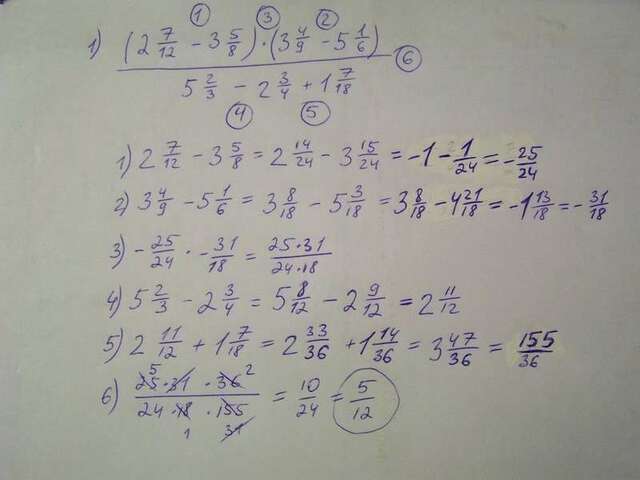 ① ③ ②
1) (2 7/12 - 3 5/8) · (3 4/9 - 5 1/6)
⑥
5 2/3 - 2 3/4 + 1 7/18
④ ⑤
1) 2 7/12 - 3 5/8 = 2 14/24 - 3 15/24 = -1 - 1/24 = - 25/24
2) 3 4/9 - 5 1/6 = 3 8/18 - 5 3/18 = 3 8/18 - 4 21/18 = -1 13/18 = - 31/18
3) - 25/24 · - 31/18 = 25·31/24·18
4) 5 2/3 - 2 3/4 = 5 8/12 - 2 9/12 = 2 11/12
5) 2 11/12 + 1 7/18 = 2 33/36 + 1 14/36 = 3 47/36 = 155/36
6) 25 5 · 31 · 36 2 / 24 · 18 1 · 155 31 = 10/24 = 5/12